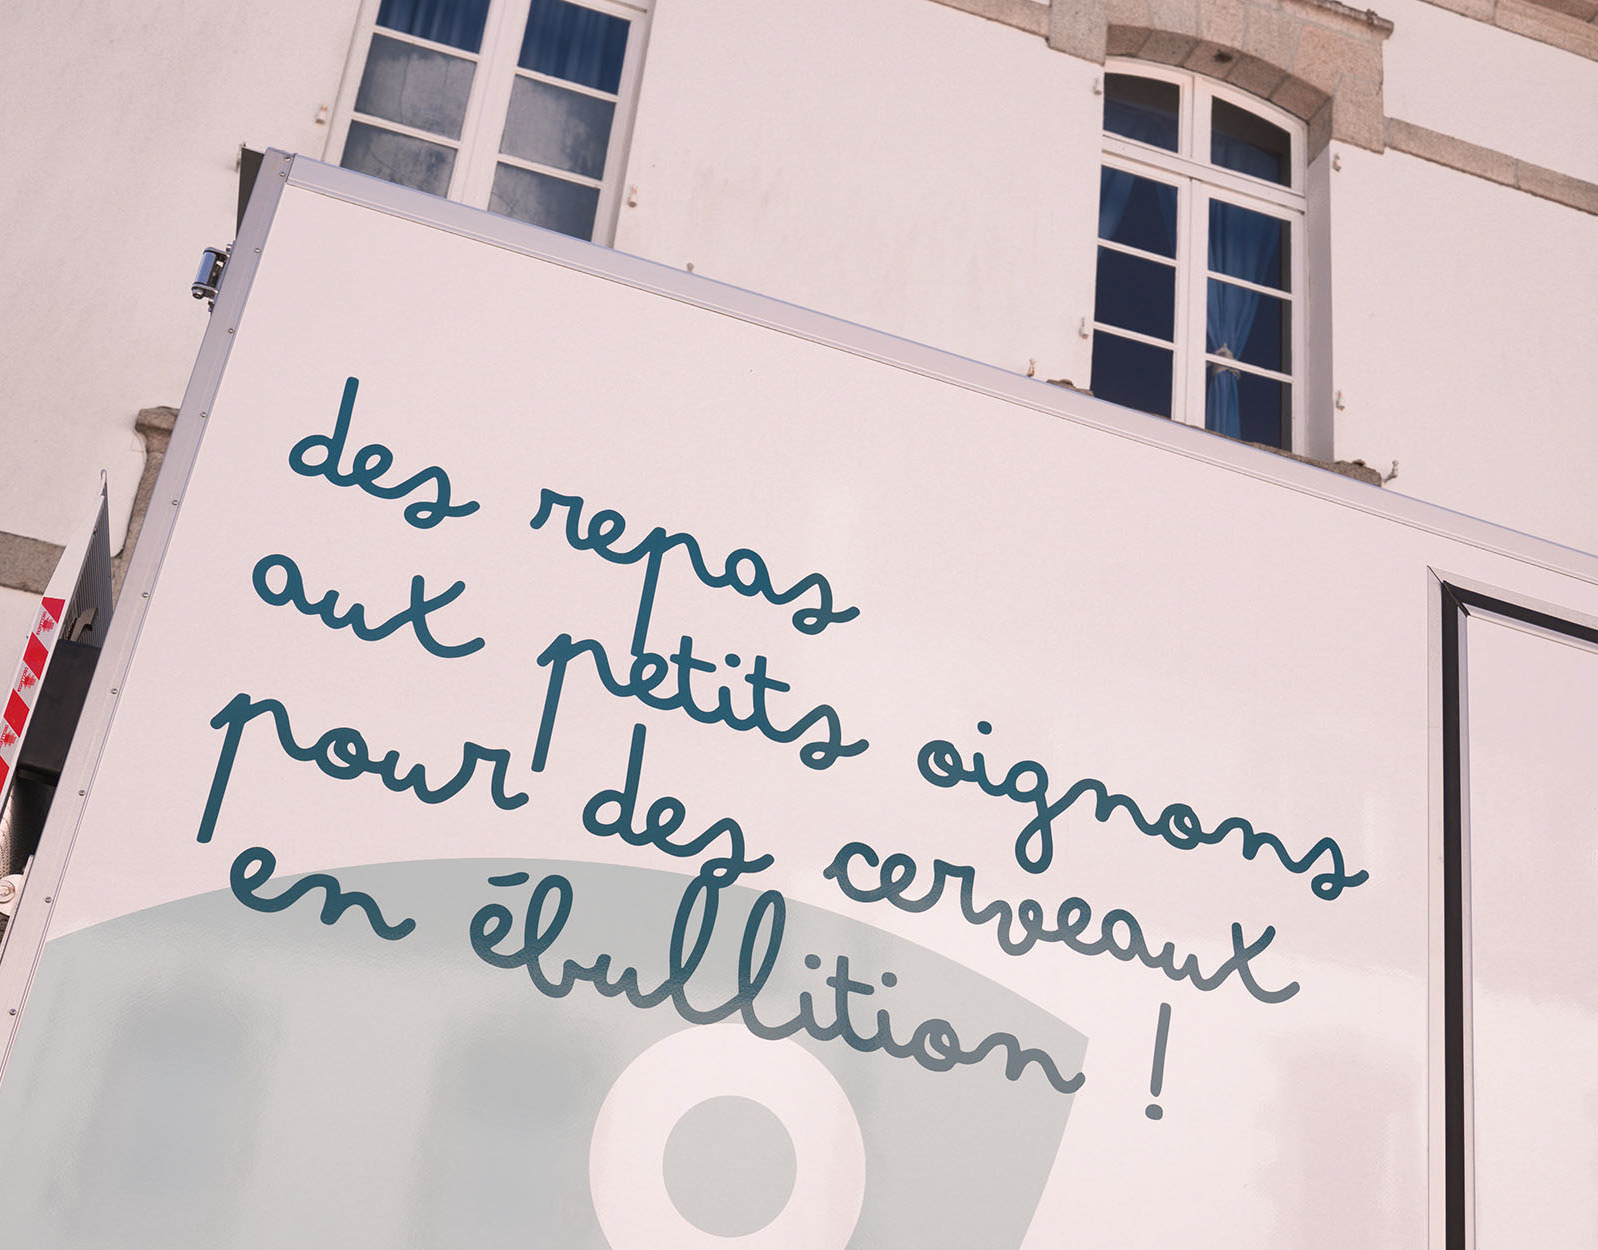 des repas
aux petits oignons
pour des cerveaux
en ébullition !